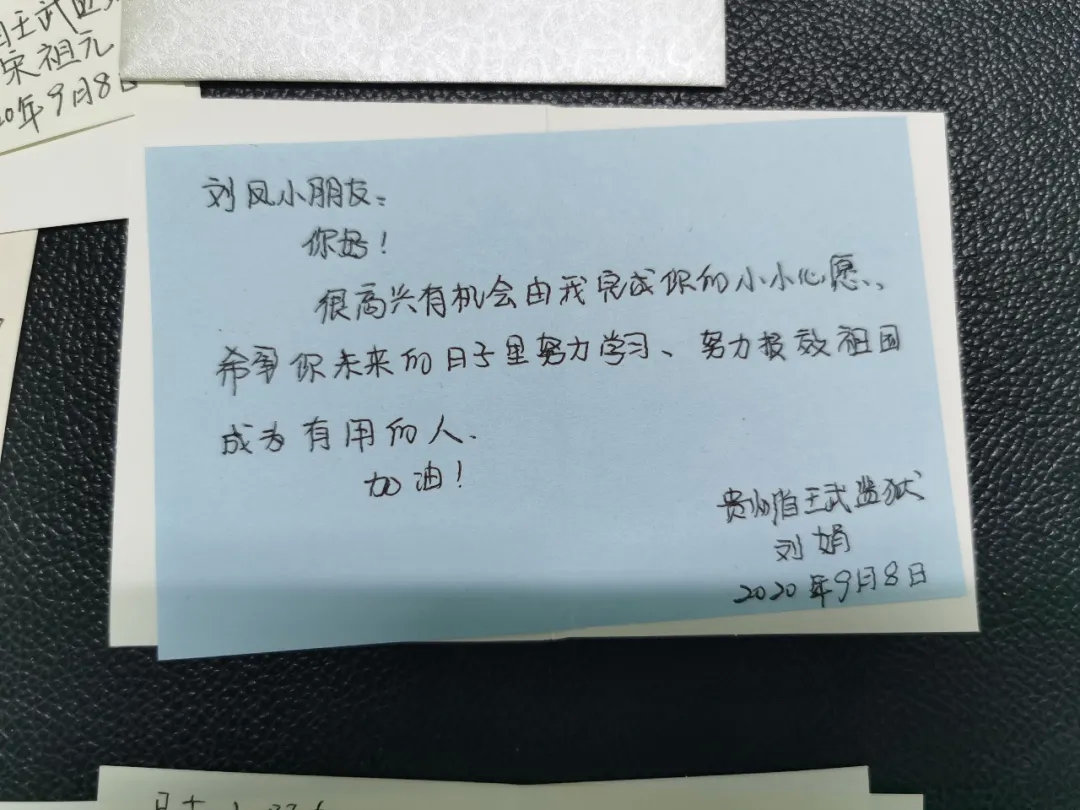 王武监
宋祖元
20年9月8日
刘凤小朋友:
你好!
很高兴有机会由我完成你的小小心愿、
希望你未来的日子里努力学习、努力报效祖国
成为有用的人、
加油!
贵州省王武监狱
刘娟
2020年9月8日